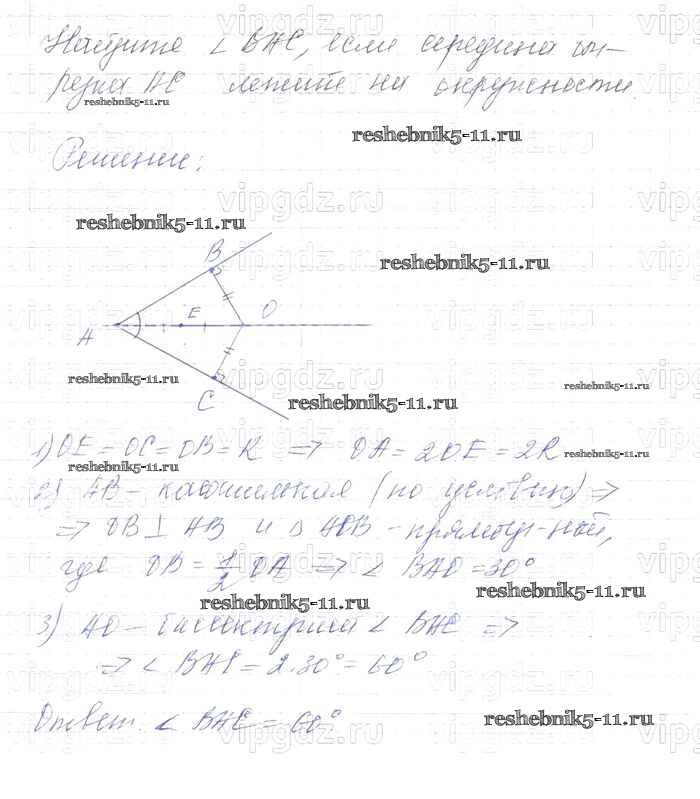 Найдите ∠ BAC, если середина от-
резка AC лежит на окружности.
reshebnik5-11.ru
reshebnik5-11.ru
Решение:
reshebnik5-11.ru
reshebnik5-11.ru
B
E
O
A
C
reshebnik5-11.ru
reshebnik5-11.ru
reshebnik5-11.ru
1) OE = OC = OB = R ⇒ OA = 2OE = 2R
reshebnik5-11.ru
reshebnik5-11.ru
2) AB - касательная (по условию) ⇒
⇒ OB ⊥ AB и △ AOB - прямоуг-ный,
где OB = 1/2 OA ⇒ ∠ BAO = 30°
reshebnik5-11.ru
reshebnik5-11.ru
3) AO - биссектриса ∠ BAC ⇒
⇒ ∠ BAC = 2·30° = 60°
Ответ: ∠ BAC = 60°
reshebnik5-11.ru
vipgdz.ru